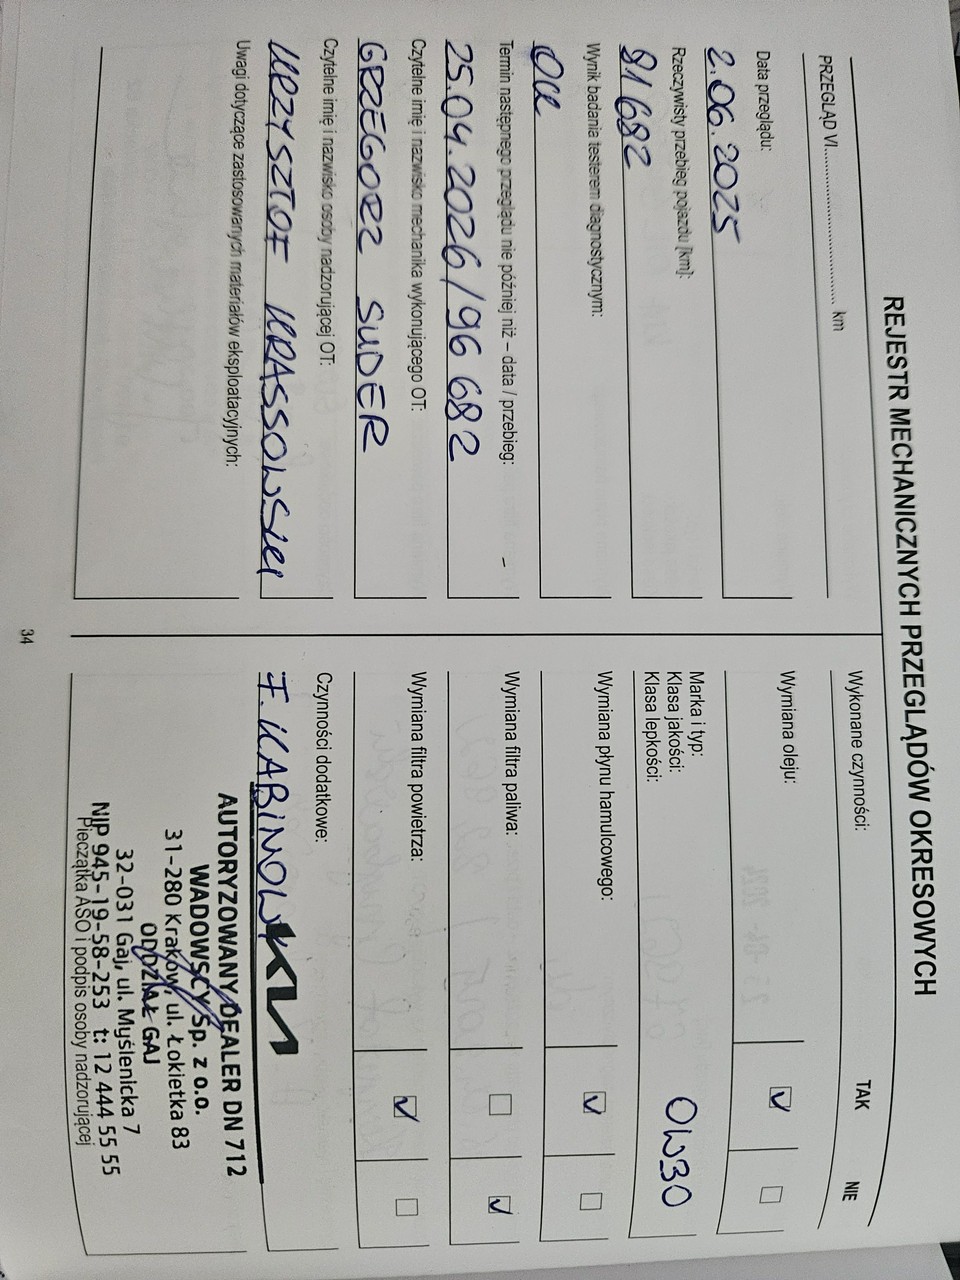 REJESTR MECHANICZNYCH PRZEGLĄDÓW OKRESOWYCH
PRZEGLĄD VI.............................. km
Data przeglądu:
2.06.2025
Rzeczywisty przebieg pojazdu [km]:
81 682
Wynik badania testerem diagnostycznym:
OK
Termin następnego przeglądu nie później niż – data / przebieg:
25.04.2026/96 682
Czytelne imię i nazwisko mechanika wykonującego OT:
GRZEGORZ SUDER
Czytelne imię i nazwisko osoby nadzorującej OT:
KRZYSZTOF KRASSOWSKI
Uwagi dotyczące zastosowanych materiałów eksploatacyjnych:
Wykonane czynności: TAK NIE
Wymiana oleju:
Marka i typ:
Klasa jakości:
Klasa lepkości: 0W30
Wymiana płynu hamulcowego:
Wymiana filtra paliwa:
Wymiana filtra powietrza:
Czynności dodatkowe:
F. KABINOWY
KIA
AUTORYZOWANY DEALER DN 712
WADOWSCY Sp. z o.o.
31-280 Kraków, ul. Łokietka 83
ODDZIAŁ GAJ
32-031 Gaj, ul. Myślenicka 7
NIP 945-19-58-253 t: 12 444 55 55
Pieczątka ASO i podpis osoby nadzorującej
34